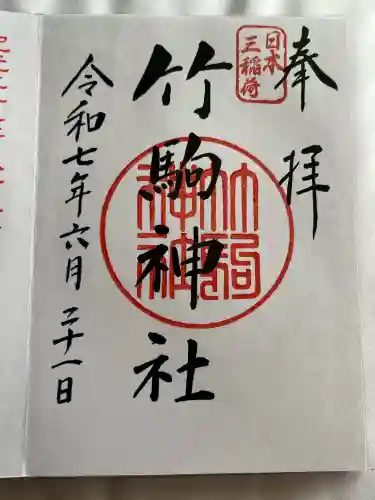 奉拝
日本
三稲荷
竹駒神社
竹駒
神社
令和七年六月二十一日